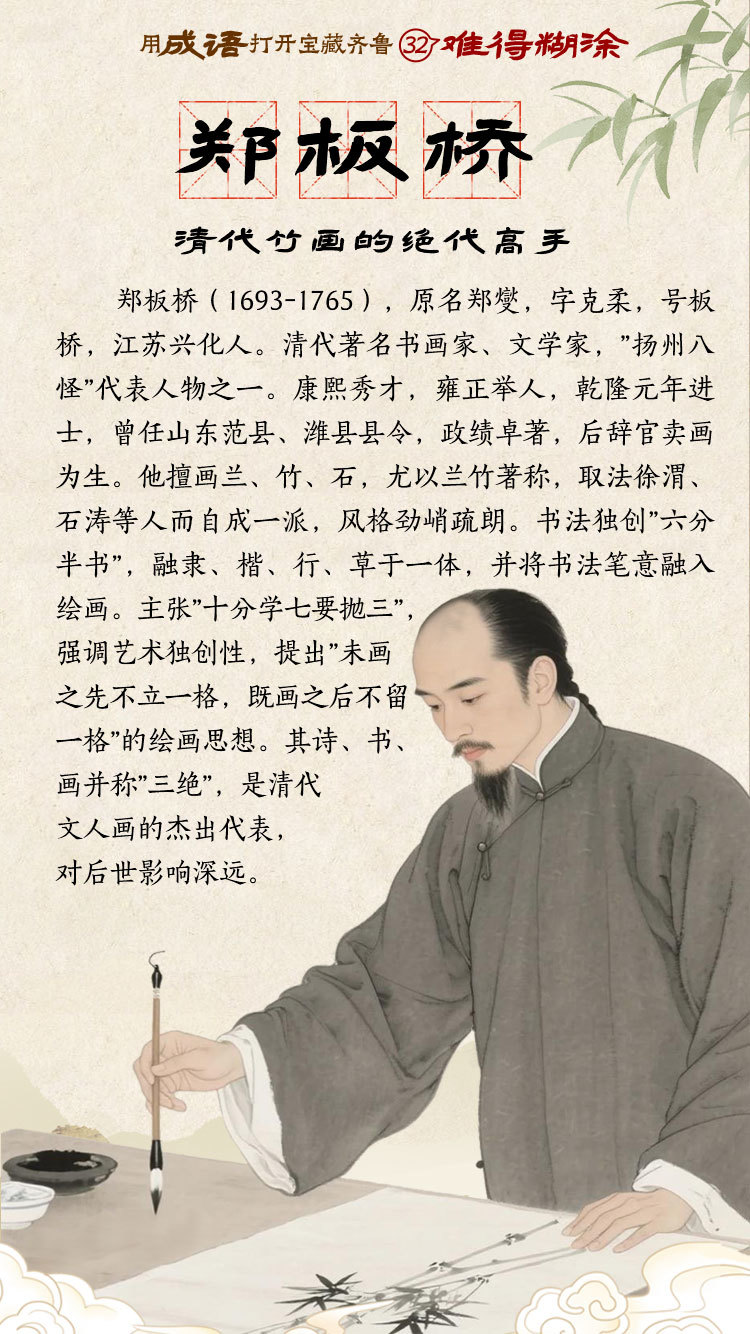 用成语打开宝藏齐鲁32难得糊涂
郑板桥
清代竹画的绝代高手
郑板桥（1693-1765），原名郑燮，字克柔，号板
桥，江苏兴化人。清代著名书画家、文学家，"扬州八
怪"代表人物之一。康熙秀才，雍正举人，乾隆元年进
士，曾任山东范县、潍县县令，政绩卓著，后辞官卖画
为生。他擅画兰、竹、石，尤以兰竹著称，取法徐渭、
石涛等人而自成一派，风格劲峭疏朗。书法独创"六分
半书"，融隶、楷、行、草于一体，并将书法笔意融入
绘画。主张"十分学七要抛三"，
强调艺术独创性，提出"未画
之先不立一格，既画之后不留
一格"的绘画思想。其诗、书、
画并称"三绝"，是清代
文人画的杰出代表，
对后世影响深远。